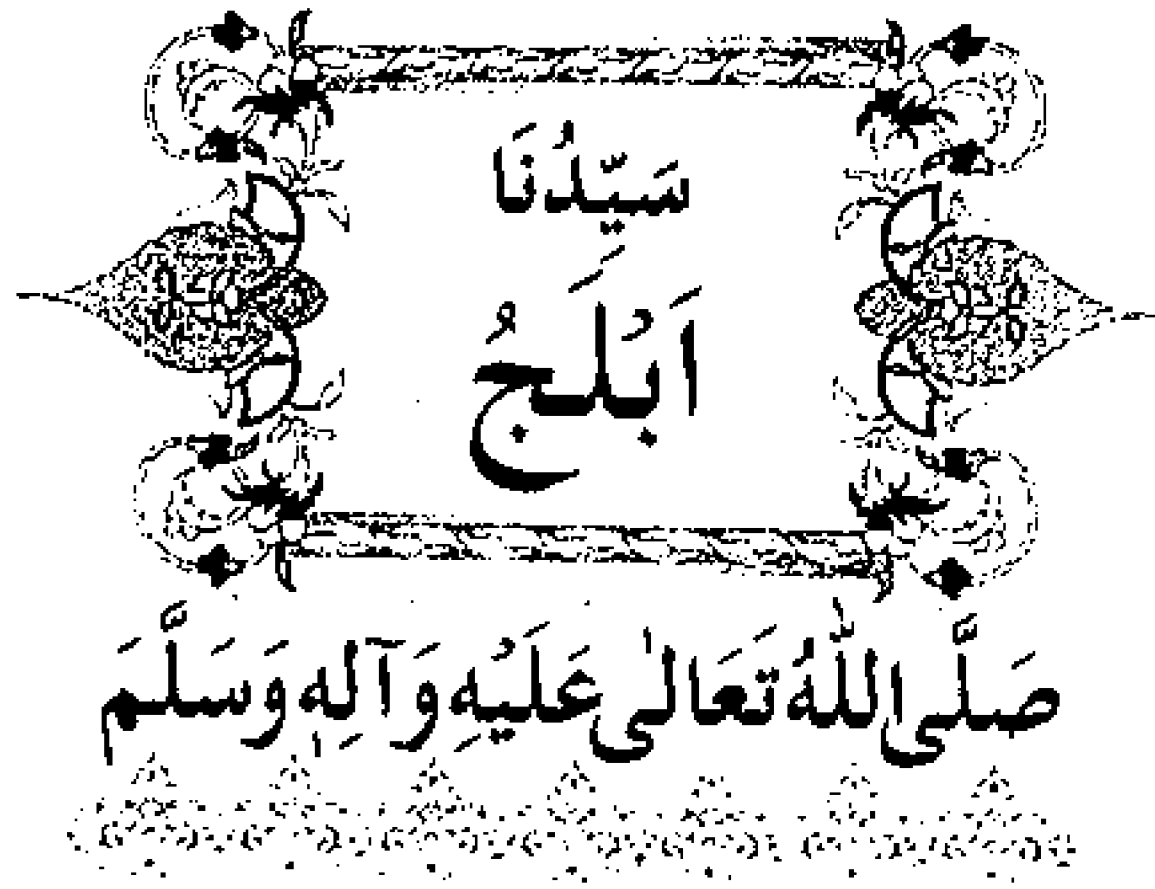 سَيِّدُنَا
اَبْلَجُ
صَلَّی اللّٰهُ تَعَالٰی عَلَیْهِ وَآلِهٖ وَسَلَّمَ